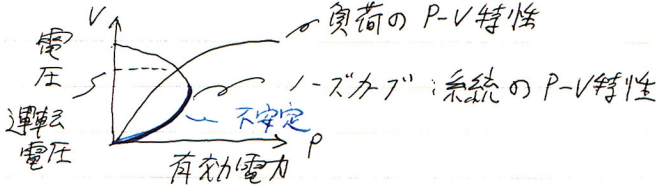 V
電圧
運転電圧
負荷の P-V特性
ノーズカーブ：系統の P-V特性
不安定
P
有効電力